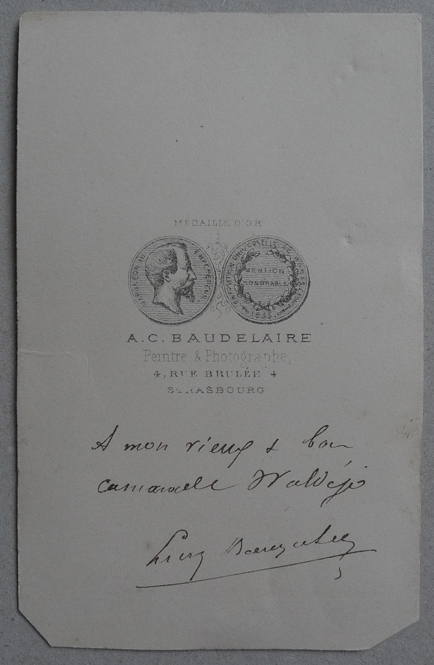 MEDAILLE D'OR
NAPOLEON III EMPEREUR
EXPOSITION UNIVERSELLE
MENTION
HONORABLE
1855
A. C. BAUDELAIRE
Peintre & Photographe,
4, RUE BRULÉE 4
STRASBOURG
A mon vieux & bon
camarade